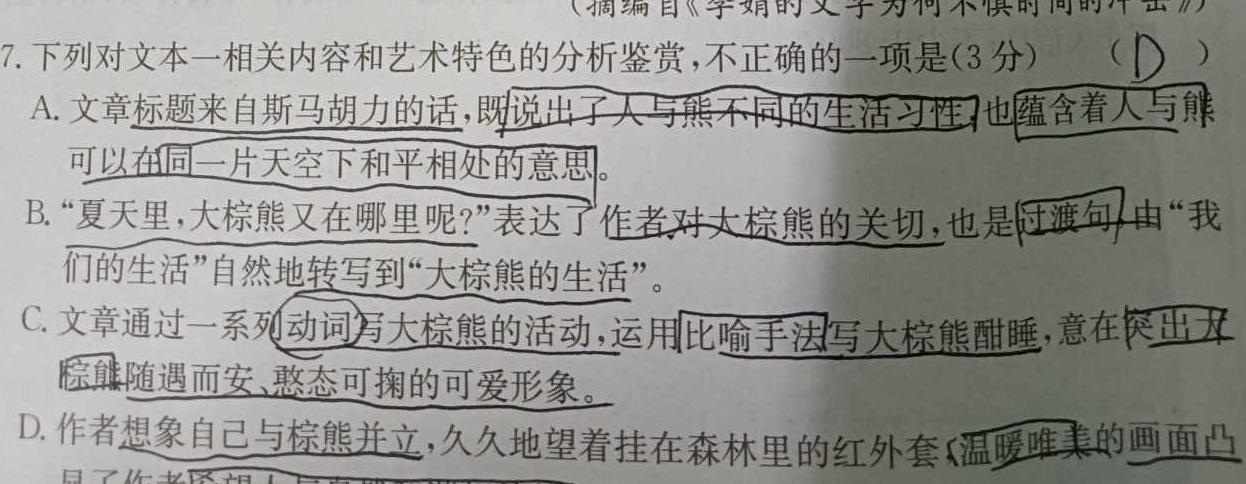 (摘编自《李娟的文字为何不惧时间的冲击》)
7. 下列对文本一相关内容和艺术特色的分析鉴赏,不正确的一项是(3分) ( D )
A. 文章标题来自斯马胡力的话,既说出了人与熊不同的生活习性,也蕴含着人与熊
可以在同一片天空下和平相处的意思。
B. “夏天里,大棕熊又在哪里呢?”表达了作者对大棕熊的关切,也是过渡句,由“我
们的生活”自然地转写到“大棕熊的生活”。
C. 文章通过一系列动词写大棕熊的活动,运用比喻手法写大棕熊酣睡,意在突出大
棕熊随遇而安、憨态可掬的可爱形象。
D. 作者想象自己与棕熊并立,久久地望着挂在森林里的红外套,温暖唯美的画面凸
显了作者希望人与